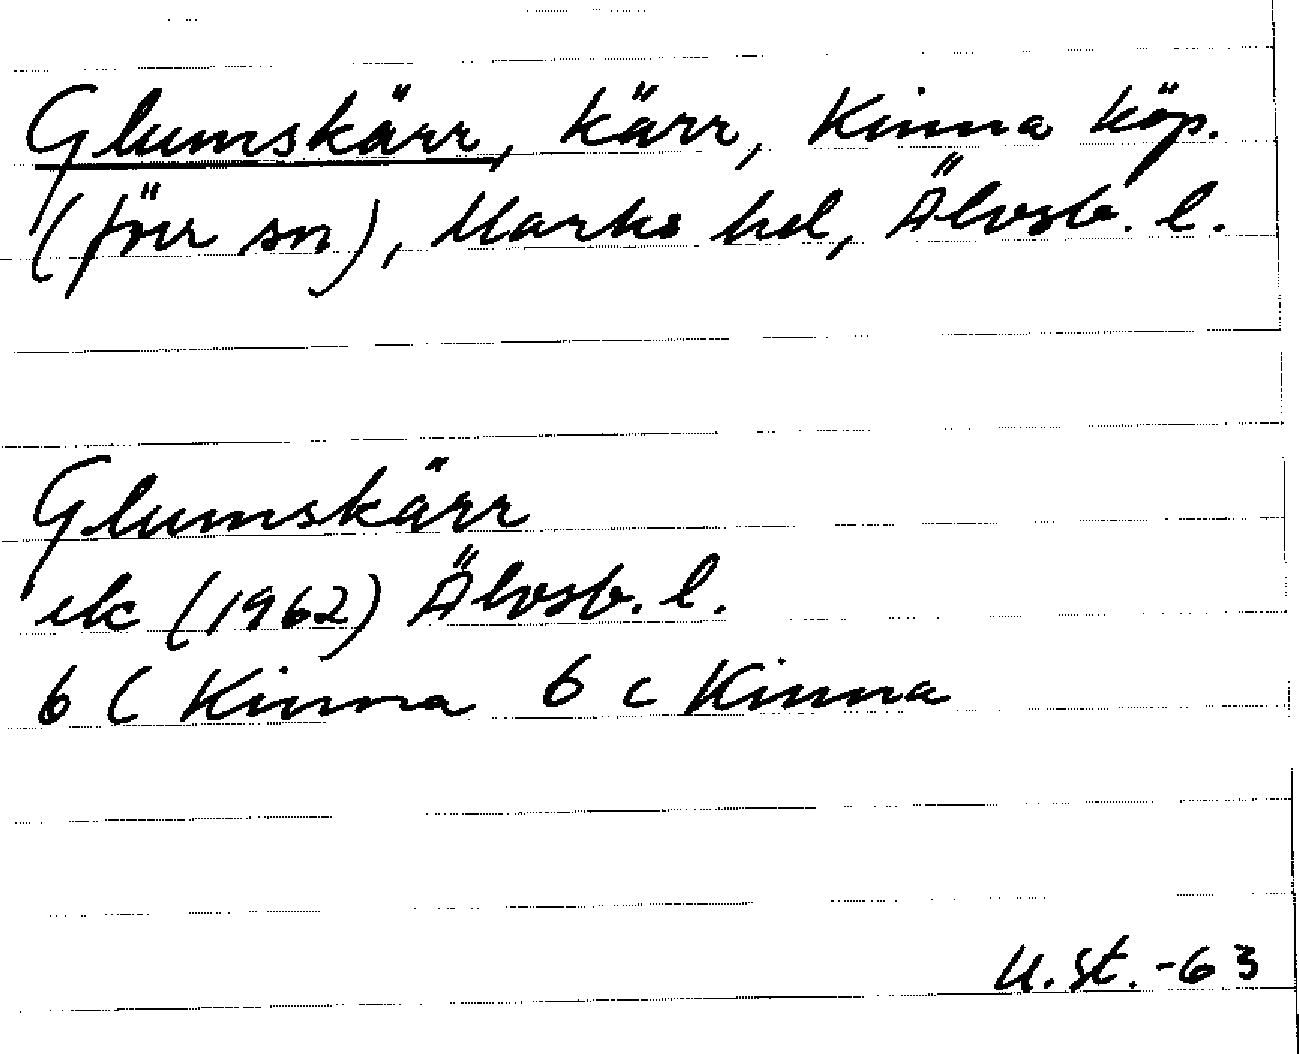 Glumskärr, kärr, Kinna köp.
(förr sn), Marks hd, Älvsb. l.
Glumskärr
ek (1962) Älvsb. l.
6 C Kinna 6 c Kinna
U. St. -63